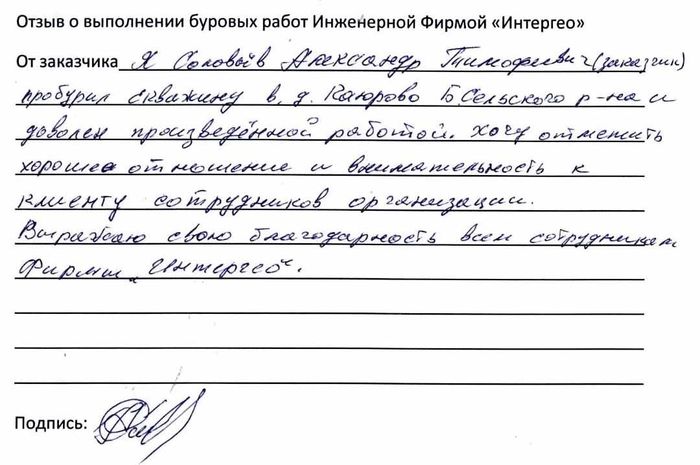 Отзыв о выполнении буровых работ Инженерной Фирмой «Интергео»
От заказчика Я Соловьёв Александр Тимофеевич (заказчик)
пробурил скважину в д. Каюрово Б.Сельского р-на и
доволен произведённой работой. Хочу отметить
хорошее отношение и внимательность к
клиенту сотрудников организации.
Выражаю свою благодарность всем сотрудникам
Фирмы „Интергео“.
Подпись: